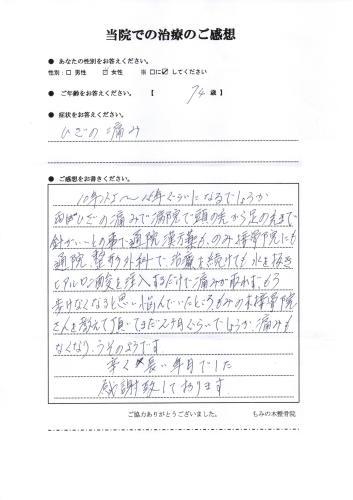 当院での治療のご感想
● あなたの性別をお答えください。
性別：□ 男性 ☑ 女性 ※ □に☑ してください
● ご年齢をお答えください。 【 74 歳 】
● 症状をお答えください。
ひざの痛み
● ご感想をお書きください。
10年以上～15年ぐらいになるでしょうか
両ひざの痛みで病院で頭の先から足の先まで
針がいいとの事で通院 漢方薬ものみ接骨院にも
通院 整形外科で治療を続けても水を抜き
ヒアルロン酸を注入するだけで痛みが取れず、もう
歩けなくなると思い悩んでいたところもみの木接骨院
さんを教えて頂いてまだ2ヶ月ぐらいでしょうか、痛みも
なくなり、うそのようです
辛く長い年月でした
感謝致しております。
ご協力ありがとうございました。 もみの木整骨院